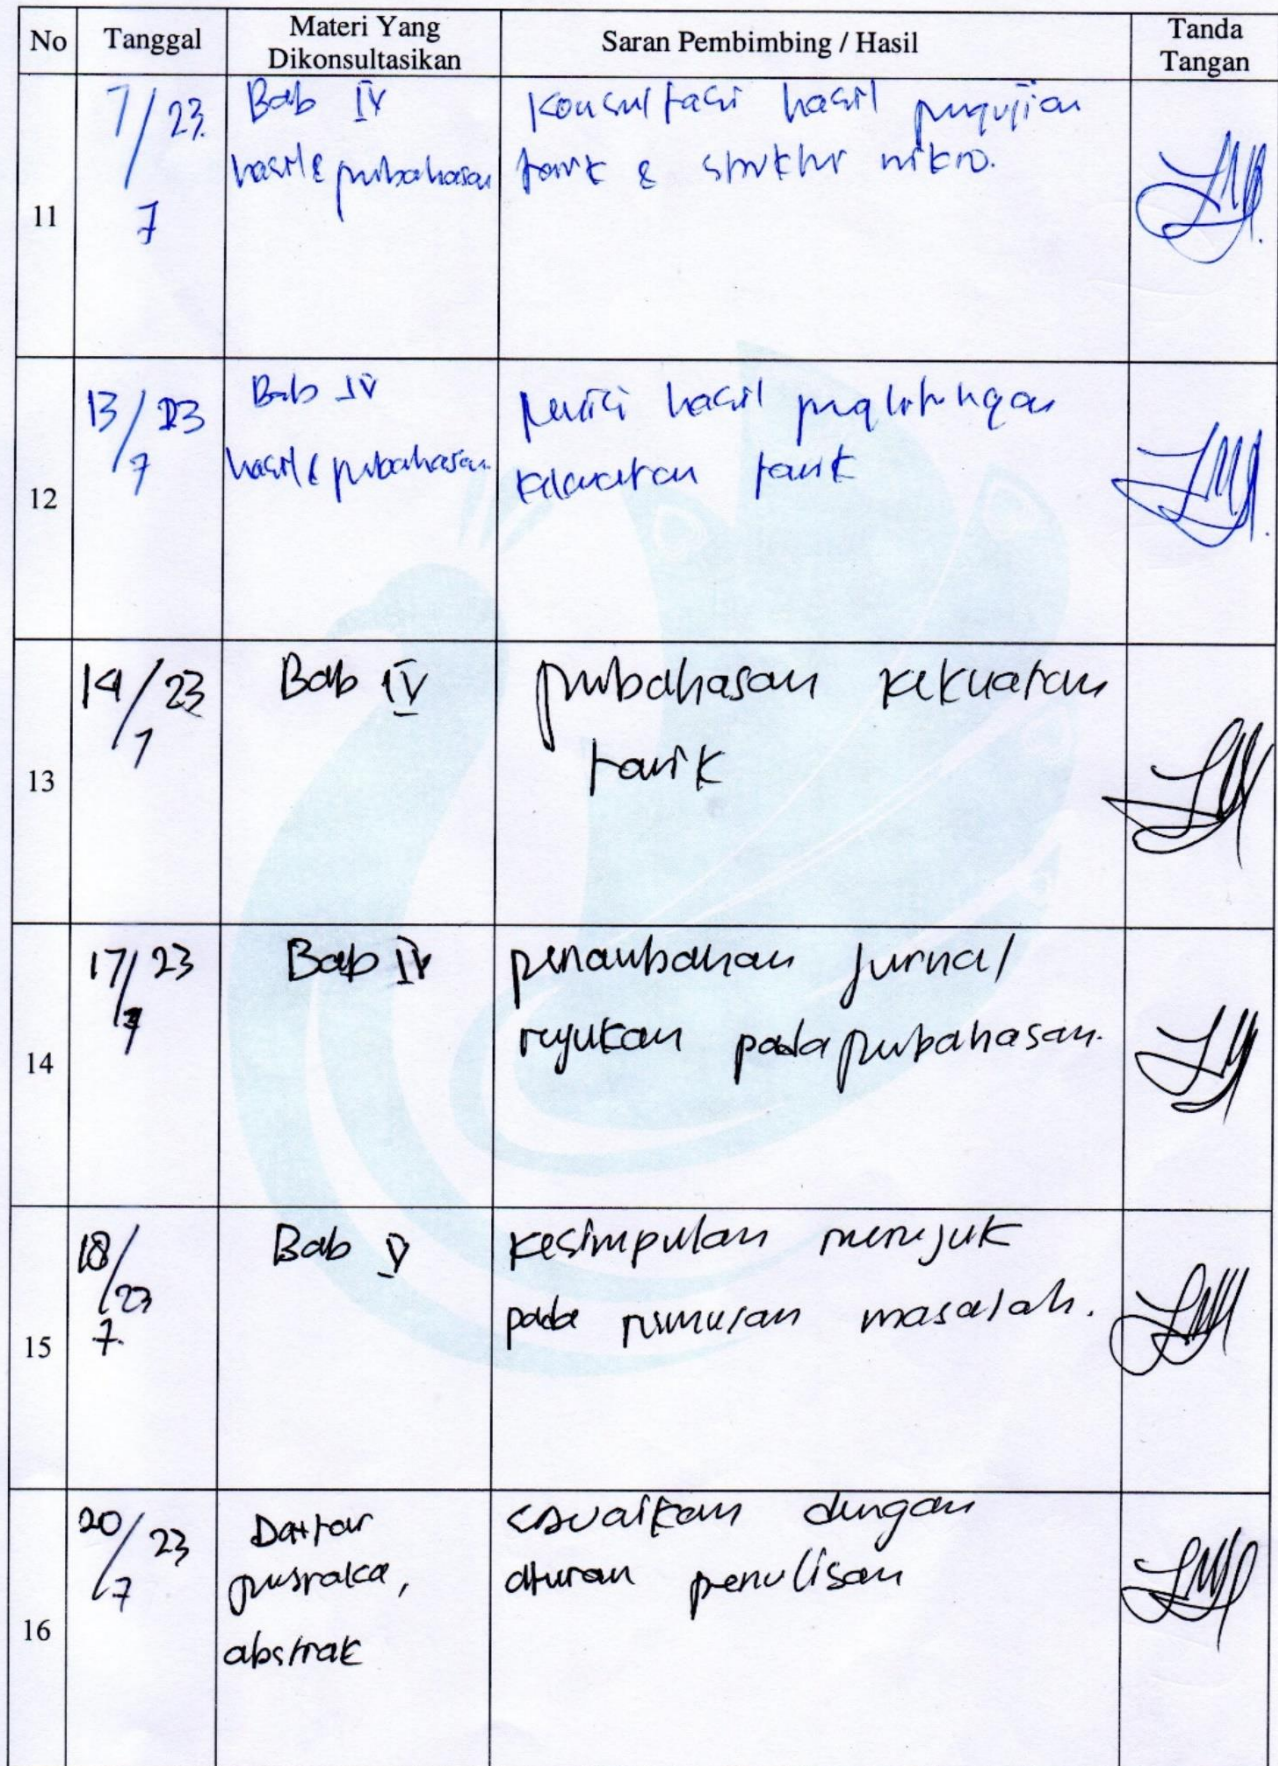 No Tanggal Materi Yang Dikonsultasikan Saran Pembimbing / Hasil Tanda Tangan
11
7/23
7
Bab IV
hasil & pembahasan
Konsultasi hasil pengujian
tarik & struktur mikro.
12
13/23
7
Bab IV
hasil & pembahasan
hasil penghitungan
kekuatan tarik
13
14/23
7
Bab IV
pembahasan kekuatan
tarik
14
17/23
7
Bab IV
penambahan jurnal
rujukan pada pembahasan.
15
18/23
7.
Bab V
Kesimpulan merujuk
pada rumusan masalah.
16
20/23
7
Daftar
pustaka,
abstrak
sesuaikan dengan
aturan penulisan